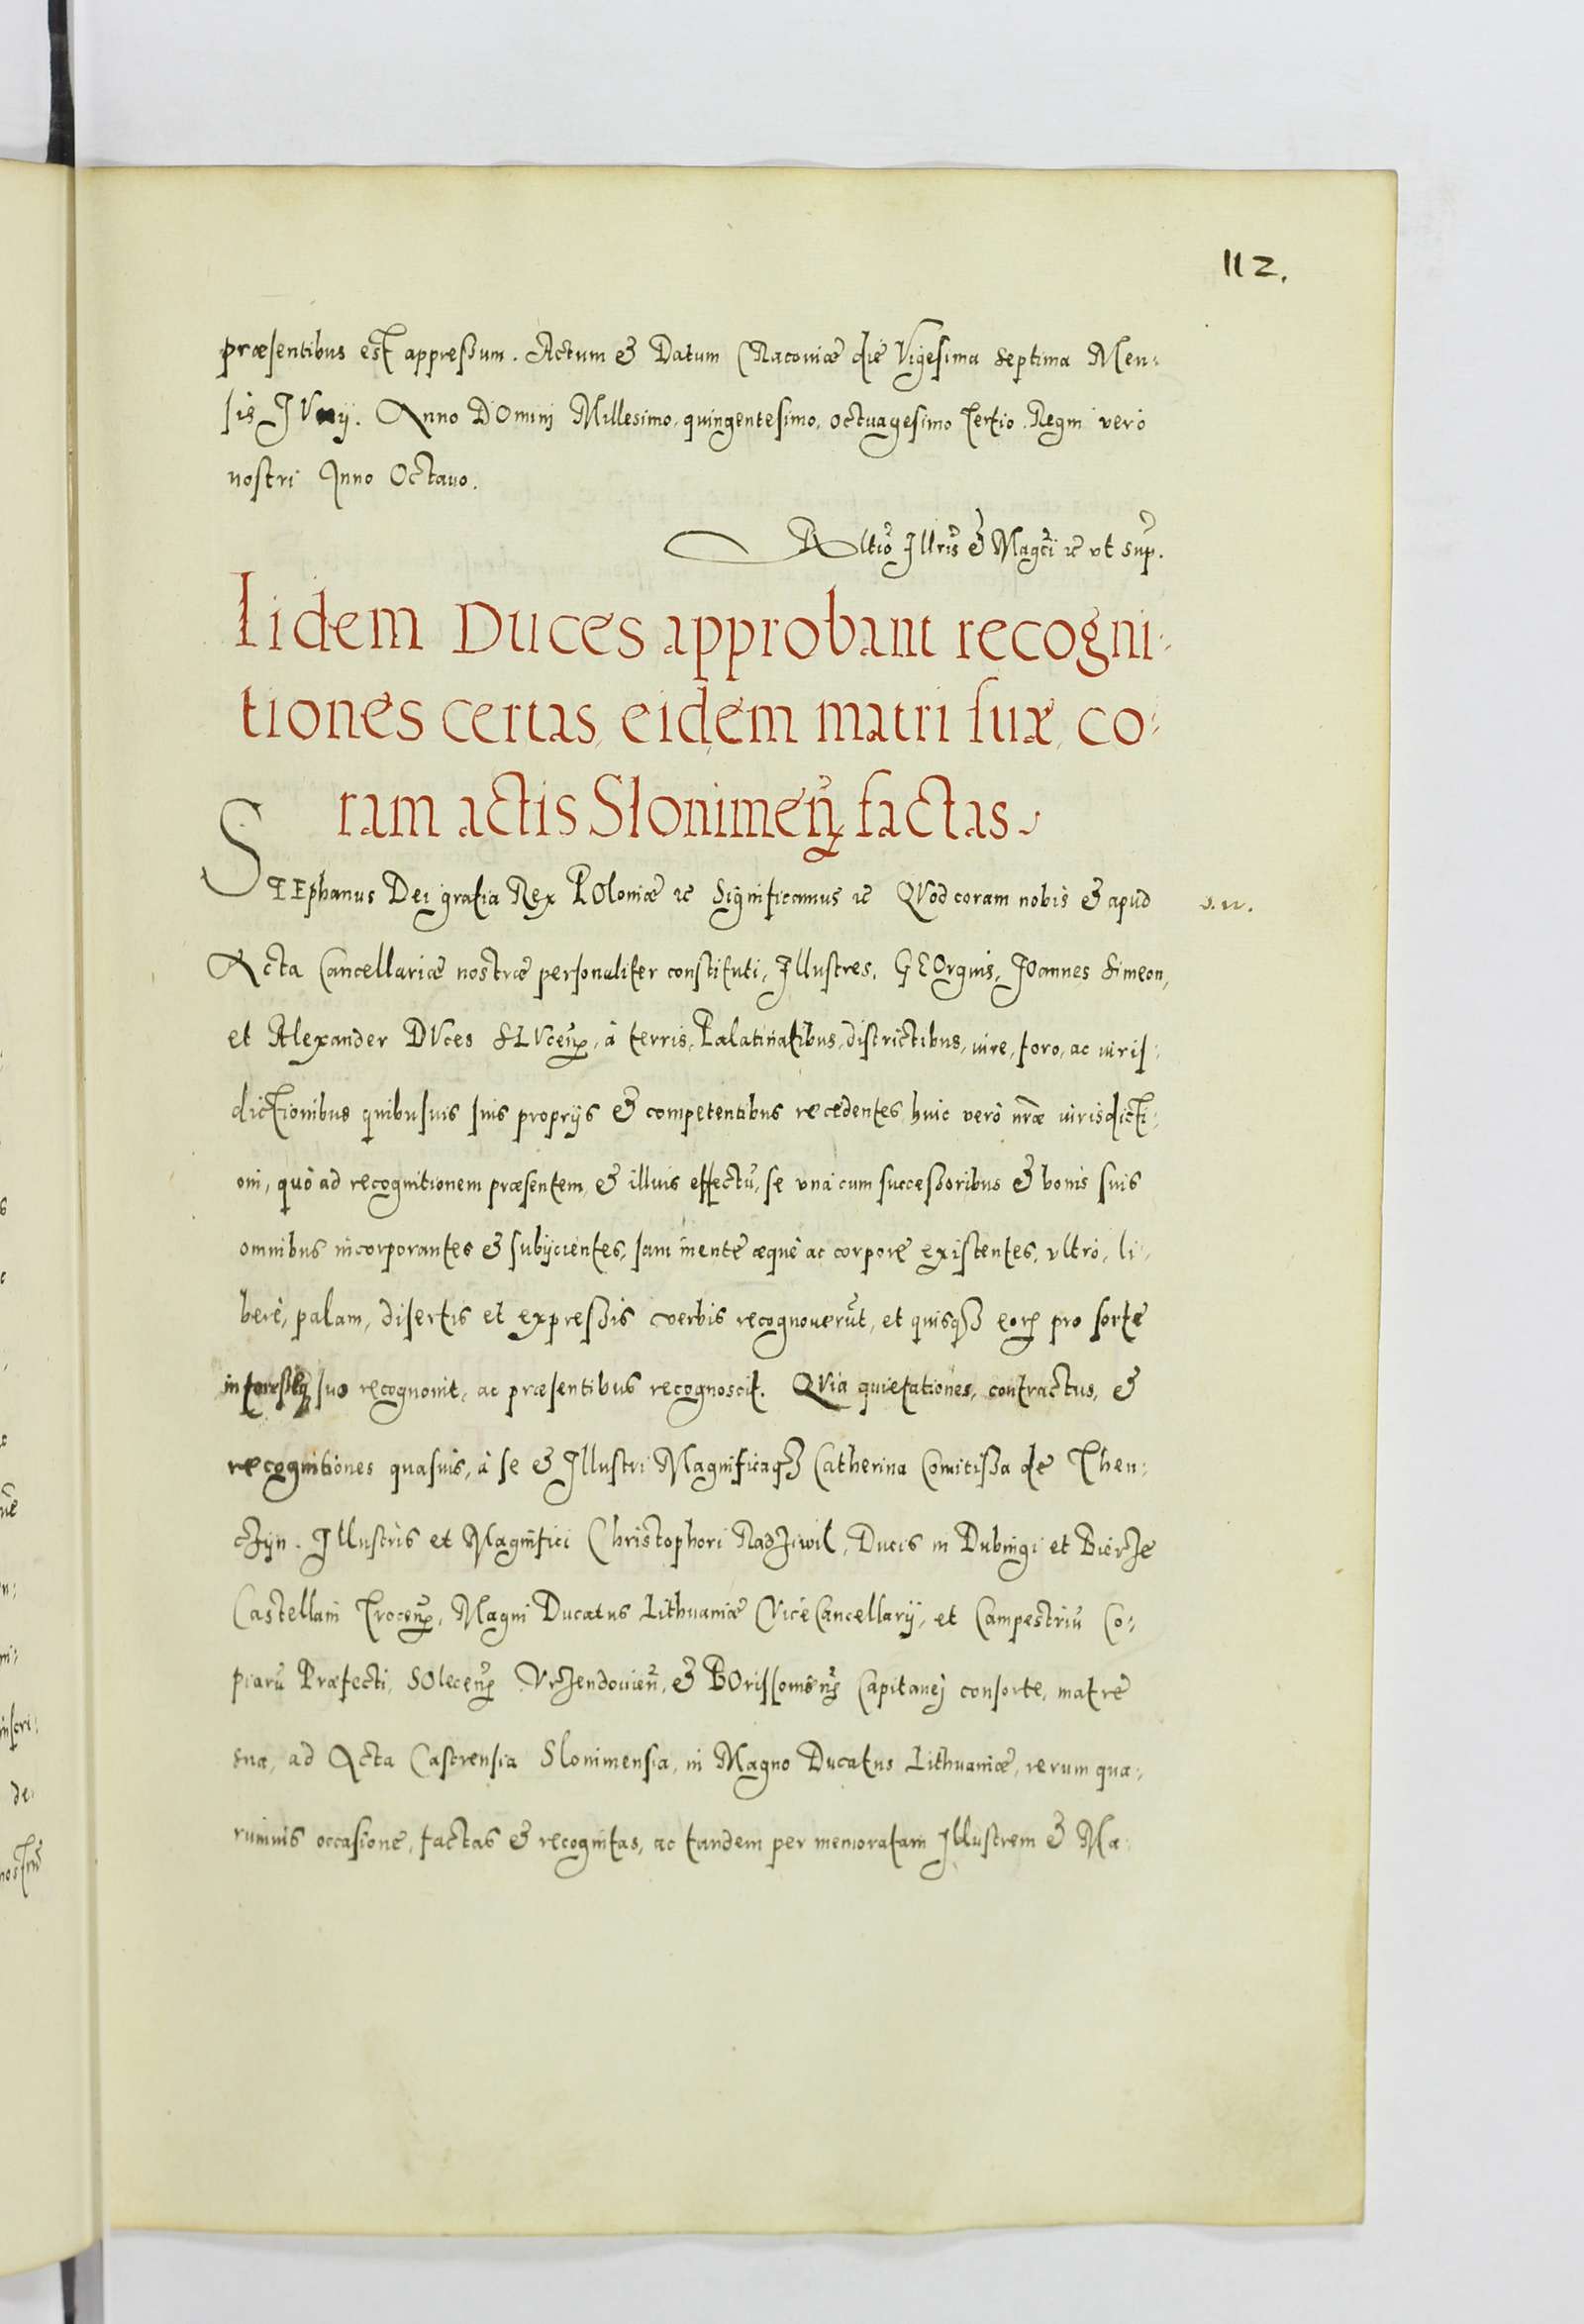 112.
præsentibus est appressum. Actum & Datum Cracoviæ die Vigesima septima Men:
sis IVnij. Anno DOmini Millesimo, quingentesimo, octuagesimo tertio. Regni vero
nostri Anno Octauo.
Rltio Illris & Magci &c vt sup.
Iidem Duces approbant recogni:
tiones certas, eidem matri suæ, co:
ram actis Slonimeñ factas.
STEphanus Dei gratia Rex POloniæ &c Significamus &c QVod coram nobis & apud
Acta Cancellariæ nostræ personaliter constituti, Illustres, GEOrgius, IOannes Simeon,
et Alexander DVces SLVceñ, à terris, Palatinatibus, districtibus, iure, foro, ac iuris:
dictionibus quibusuis suis proprijs & competentibus recedentes, huic verò nræ iurisdicti:
oni, quò ad recognitionem præsentem, & illius effectũ, se vnà cum successoribus & bonis suis
omnibus incorporantes & subijcientes, sani mente æquè ac corpore existentes, vltrò, li:
berè, palam, disertis et expressis verbis recognouerũt, et quisq3 eorũ pro sorte
interesseq3 suo recognouit, ac præsentibus recognoscit. QVia quietationes, contractus, &
recognitiones quasuis, à se & Illustri Magnificaq3 Catherina Comitissa de Then:
czyn. Illustris et Magnifici Christophori Radziwil, Ducis in Dubingi et Bierze
Castellani Troceñ, Magni Ducatus Lithuaniæ ViceCancellarij, et Campestriũ Co:
piarũ Præfecti, SOleceñ Vrzendouieñ, & BOrissoueñ Capitanej consorte, matre
sua, ad Acta Castrensia Slonimensia, in Magno Ducatus Lithuaniæ, rerum qua:
rumuis occasione, factas & recognitas, ac tandem per memoratam Illustrem & Ma: